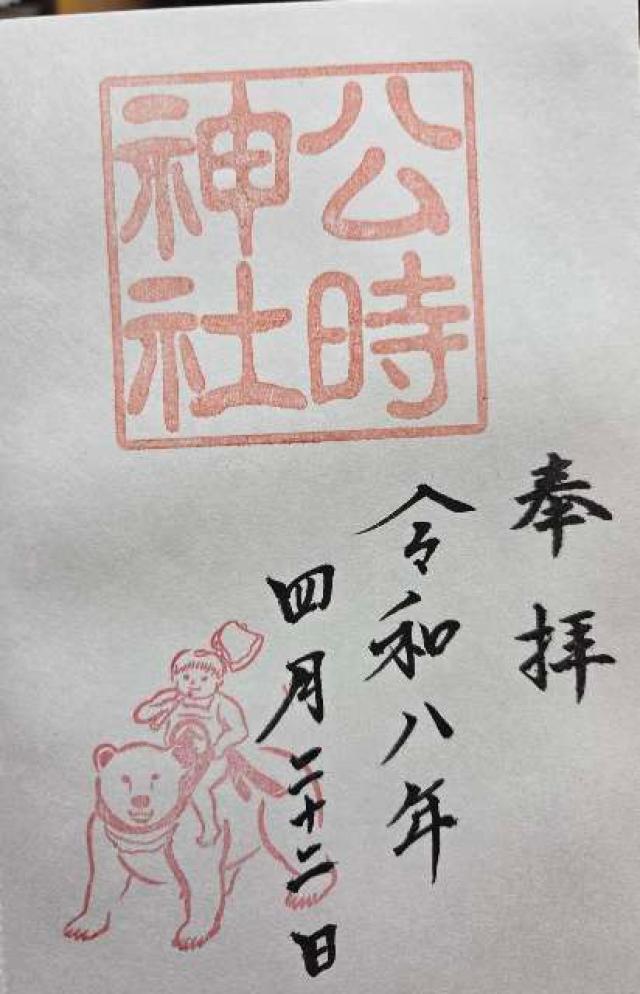 公時
神社
奉拝
令和八年
四月二十二日